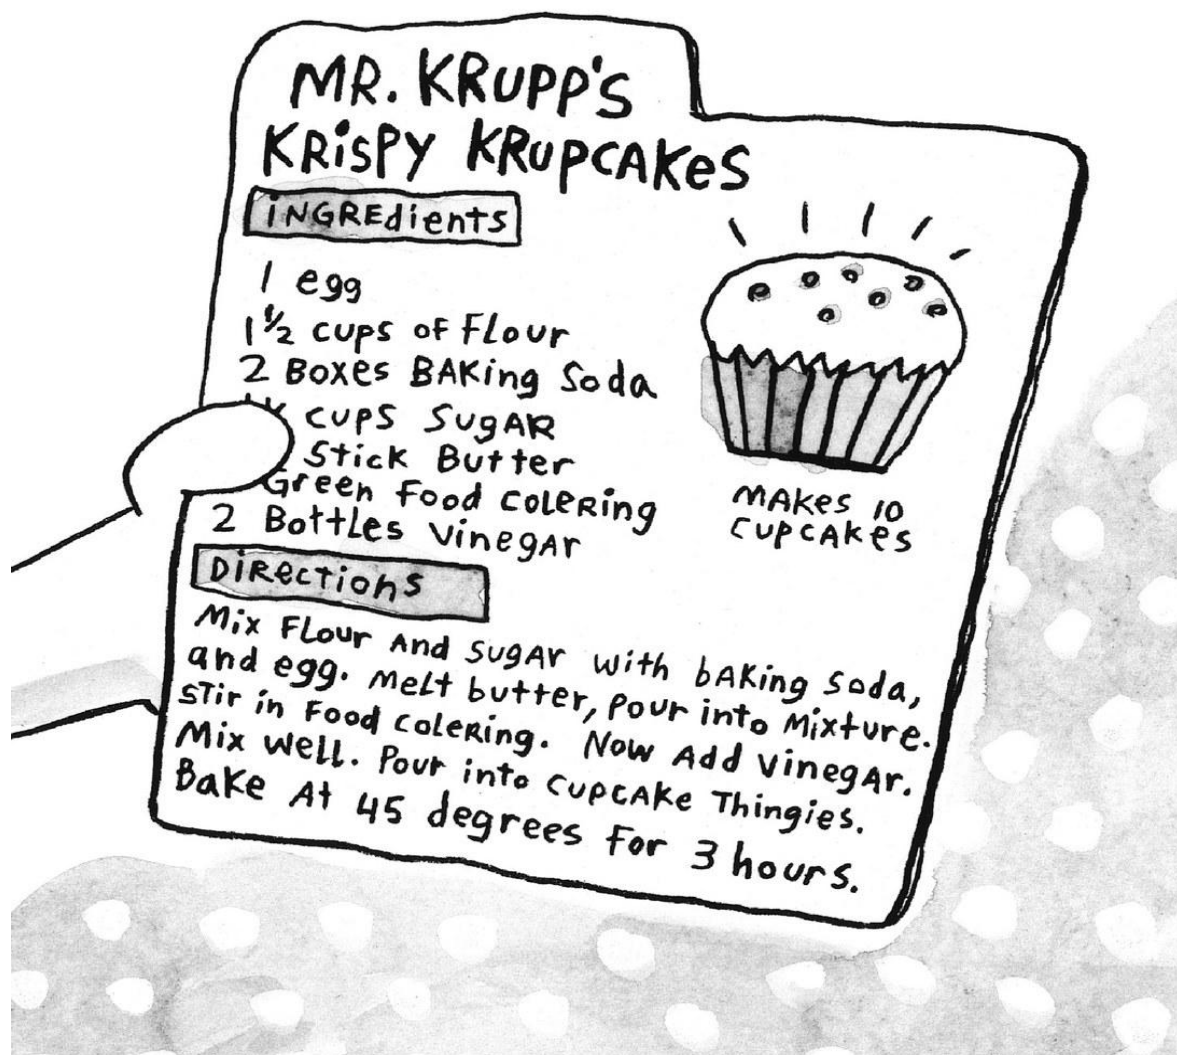 MR. KRUPP'S
KRiSPY KRUPCAKeS
iNGREdients
1 egg
1 1/2 cups oF FLour
2 Boxes BAKing Soda
cups SugAR
Stick Butter
Green Food coleRing
2 Bottles VinegAr
DiRections
MAKes 10
cupcAKes
Mix FLour And sugAr with bAKing Soda,
and egg. Melt butter, Pour into Mixture.
STir in Food coleRing. Now Add VinegAr.
Mix well. Pour into cupcAKe Thingies.
BaKe At 45 degrees For 3 hours.